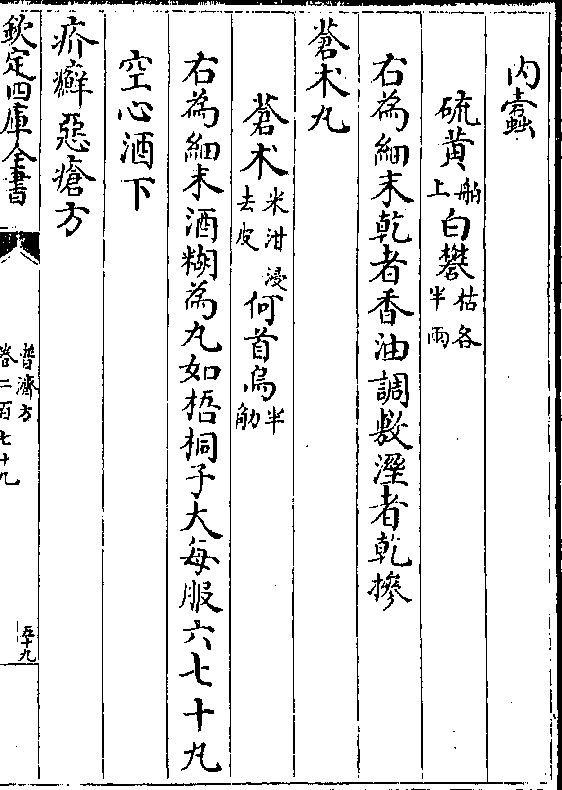 内蠧
硫黄舶上白礬枯各半兩
右為細末乾者香油調敷溼者乾摻
蒼术丸
蒼术米泔浸去皮何首烏半觔
右為細末酒糊為丸如梧桐子大每服六七十丸
空心酒下
疥癬惡瘡方
欽定四庫全書
普濟方
卷二百七十九
五十九